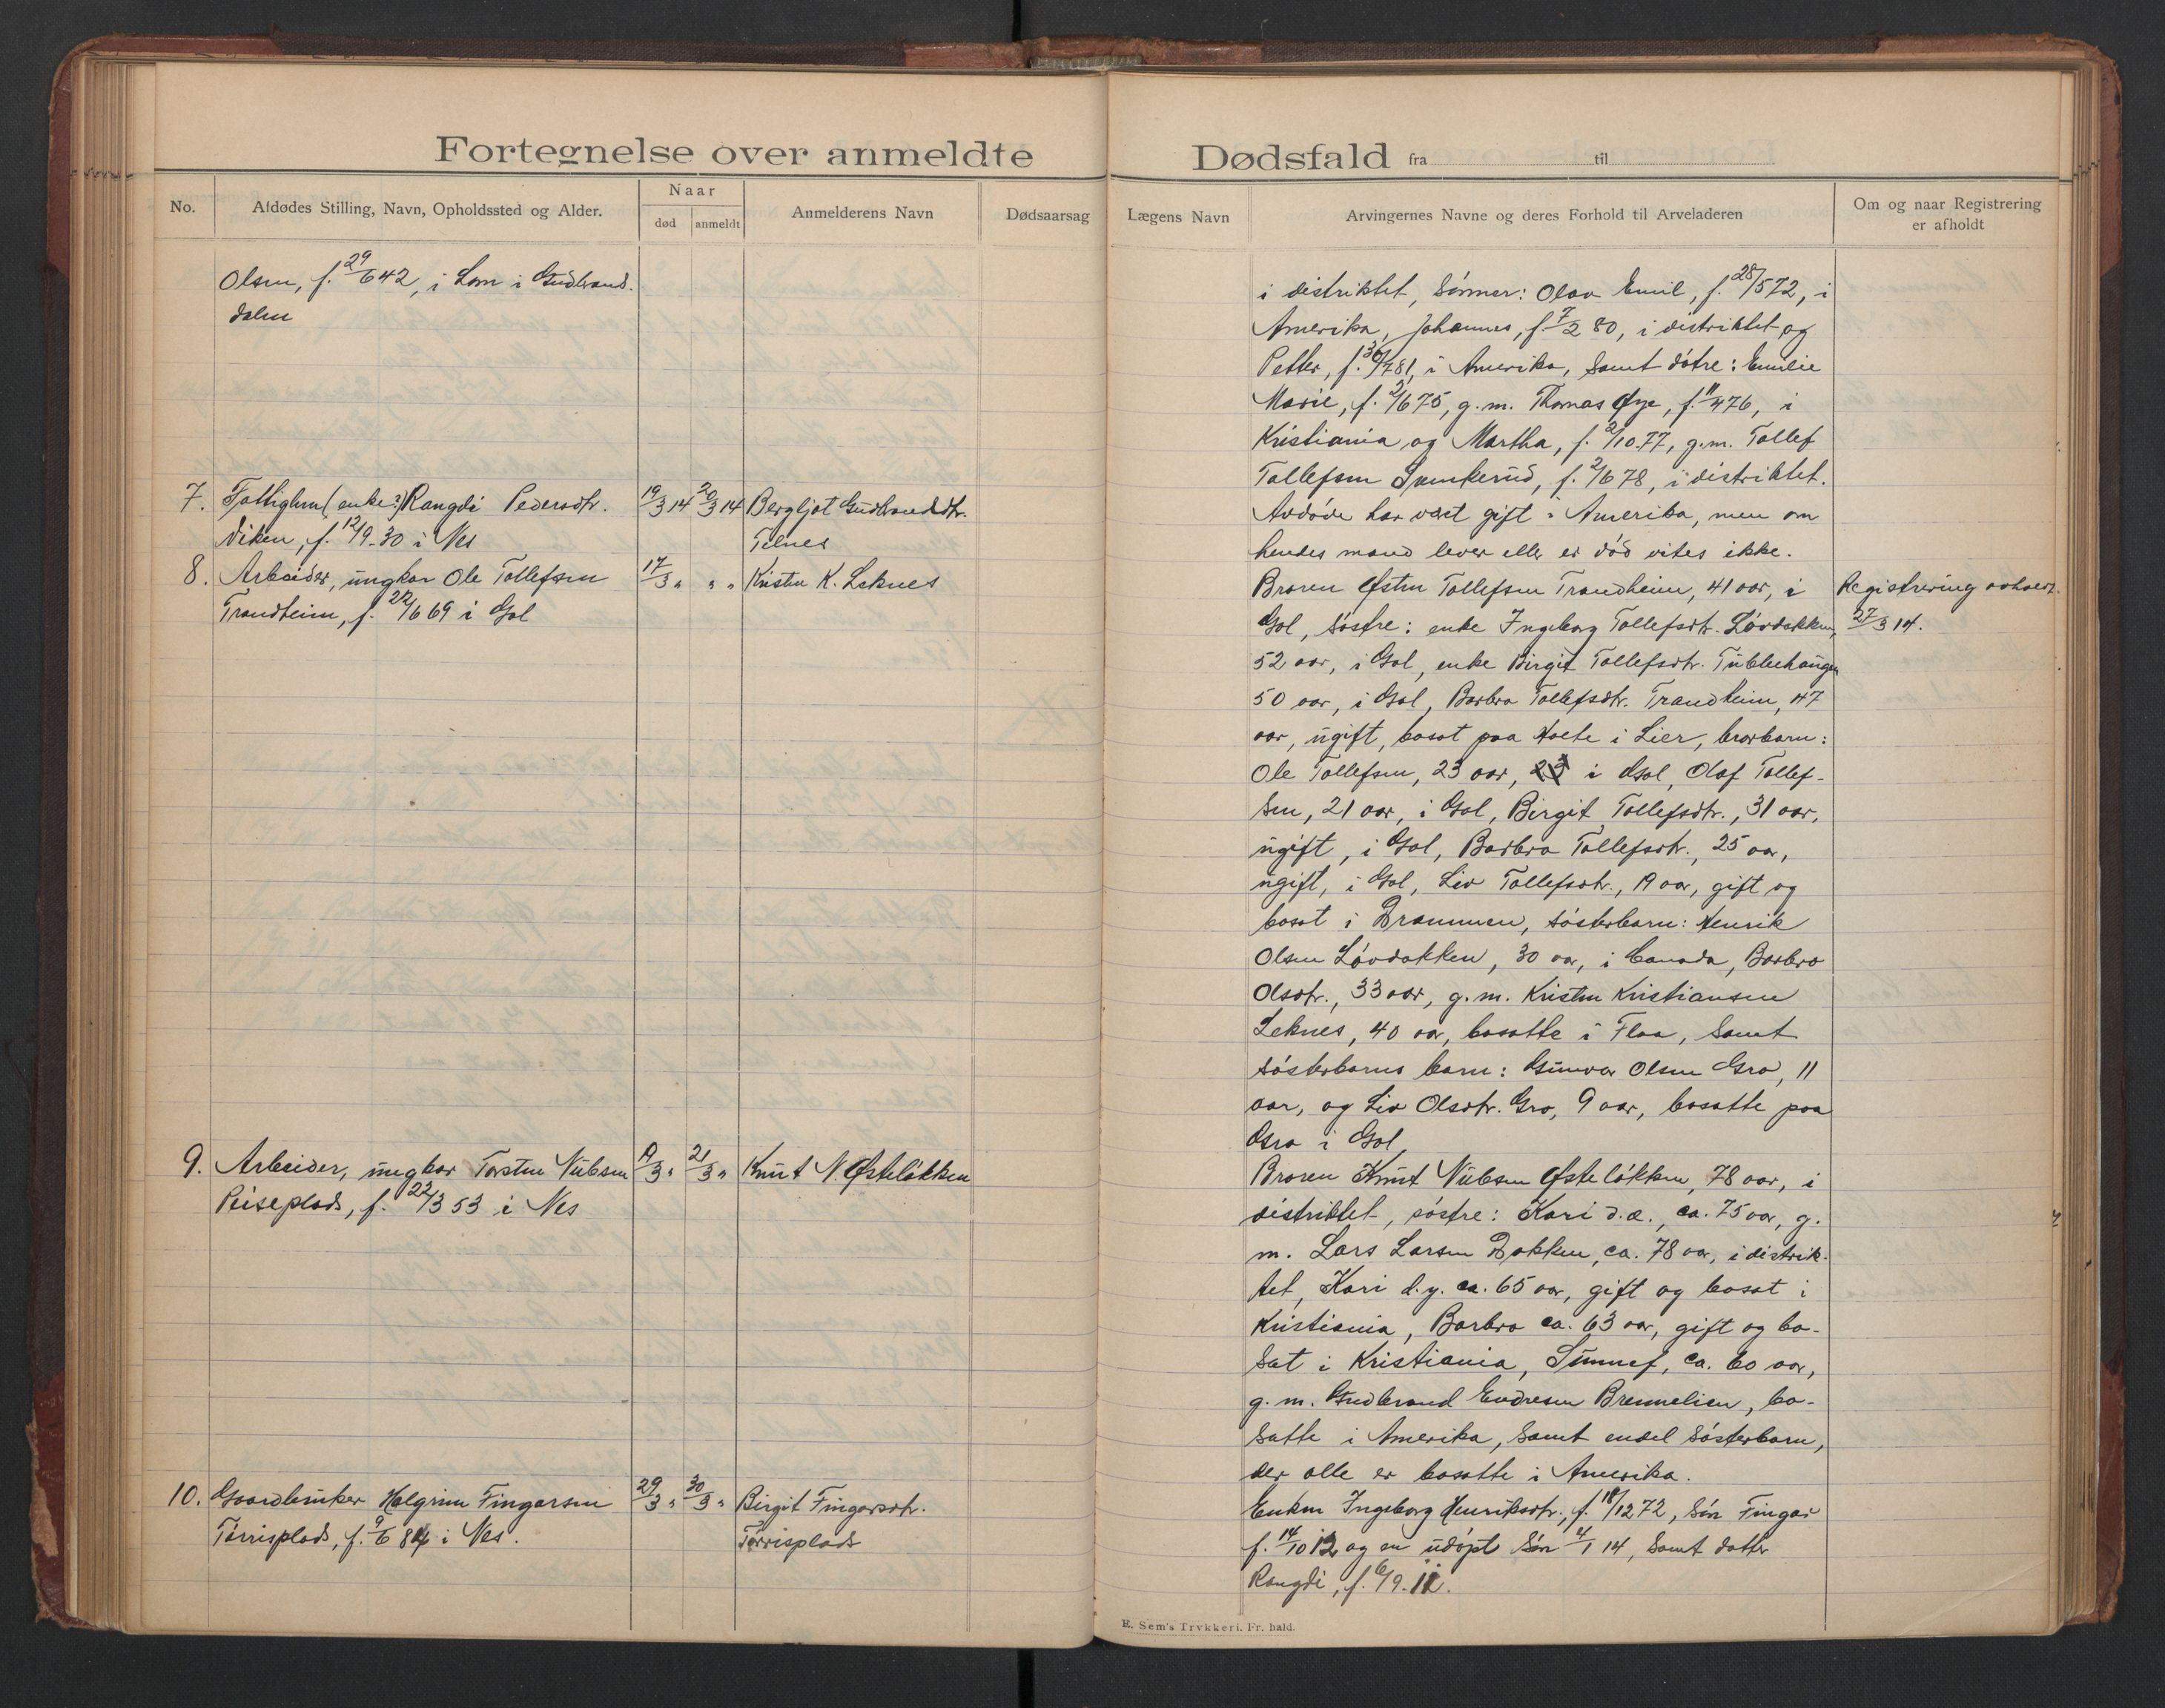 Fortegnelse over anmeldte
Dødsfald fra til
No.
Afdødes Stilling, Navn, Opholdssted og Alder.
Naar
død
anmeldt
Anmelderens Navn
Dødsaarsag
Lægens Navn
Arvingernes Navne og deres Forhold til Arveladeren
Om og naar Registrering
er afholdt
Olsen, f. 29/6 42, i Lom i Gudbrands-
dalen
7. Fattiglem (enke?) Rangdi Pedersdtr.
Viken, f. 12/9-30 i Nes
19/3 14
20/3 14
Bergljot Gudbrandsdtr.
Telnes
8. Arbeider, ungkar Ole Tollefsen
Trandheim, f. 22/6 69 i Gol
17/3 "
" "
Kristen K. Leknes
9. Arbeider, ungkar Torsten Nubsen
Peiseplads, f. 22/3 53 i Nes
19/3 "
21/3 "
Knut N. Østeløkken
10. Gaardbruker Halgrim Fingarsen
Tørrisplads, f. 9/6 84 i Nes.
29/3 "
30/3 "
Birgit Fingarsdtr.
Tørrisplads
i distriktet, sønner: Olav Emil, f. 28/5 72, i
Amerika, Johannes, f. 7/2 80, i distriktet og
Petter, f. 30/7 81, i Amerika, samt døtre: Emilie
Marie, f. 2/6 75, g.m. Thomas Øye, f. 11/4 76, i
Kristiania og Martha, f. 2/10.77, g.m. Tollef
Tollefsen, f. 2/6 78, i distriktet.
Avdøde har vært gift i Amerika, men om
hendes mand lever eller er død vites ikke.
Broren Østen Tollefsen Trandheim, 41 aar, i
Gol, søstre: enke Ingeborg Tollefsdtr. Løvdokken,
52 aar, i Gol, enke Birgit Tollefsdtr. Tublehaugen
50 aar, i Gol, Barbro Tollefsdtr. Trandheim, 47
aar, ugift, bosat paa Holte i Lier, brorbarn:
Ole Tollefsen, 23 aar, i Gol, Olaf Tollef-
sen, 21 aar, i Gol, Birgit Tollefsdtr., 31 aar,
ugift, i Gol, Barbro Tollefsdtr., 25 aar,
ugift, i Gol, Liv Tollefsdtr., 19 aar, gift og
bosat i Drammen, søsterbarn: Henrik
Olsen Løvdokken, 30 aar, i Canada, Barbro
Olsdtr., 33 aar, g.m. Kristen Kristiansen
Leknes, 40 aar, bosatte i Flaa, samt
søsterbarns barn: Gunvor Olsen Gro, 11
aar, og Liv Olsdtr. Gro, 9 aar, bosatte paa
Gro i Gol.
Broren Knut Nubsen Østeløkken, 78 aar, i
distriktet, søstre: Kari d.æ., ca. 75 aar, g.
m. Lars Larsen Bakken, ca. 78 aar, i distrik-
tet, Kari d.y. ca. 65 aar, gift og bosat i
Kristiania, Barbro ca. 63 aar, gift og bo-
sat i Kristiania, Sunnef, ca. 60 aar,
g.m. Gudbrand Endresen Brennelien, bo-
satte i Amerika, samt endel søsterbarn,
der alle er bosatte i Amerika.
Enken Ingeborg Henriksdtr., f. 18/12 72, søn Fingar
f. 14/10 12 og en udøpt søn 4/1 14, samt datter
Rangdi, f. 6/9.11.
Registrering avholdt
27/3 14.
E. Sem's Trykkeri, Fr. hald.